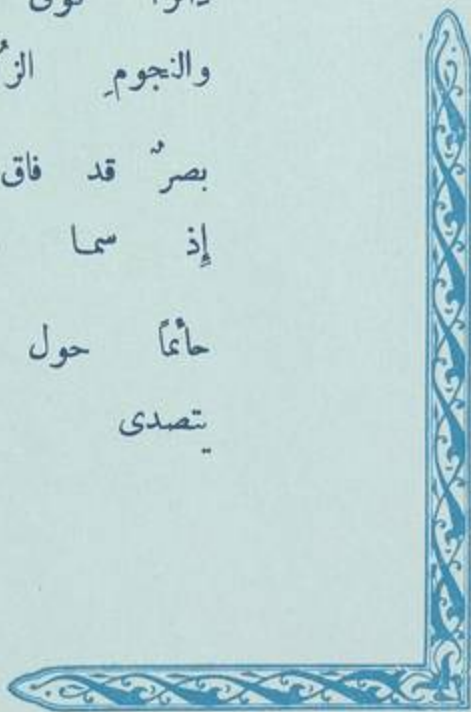 والنجومِ
بصرٌ قد فاق
إذ سما
حائمًا حول
يتصدى